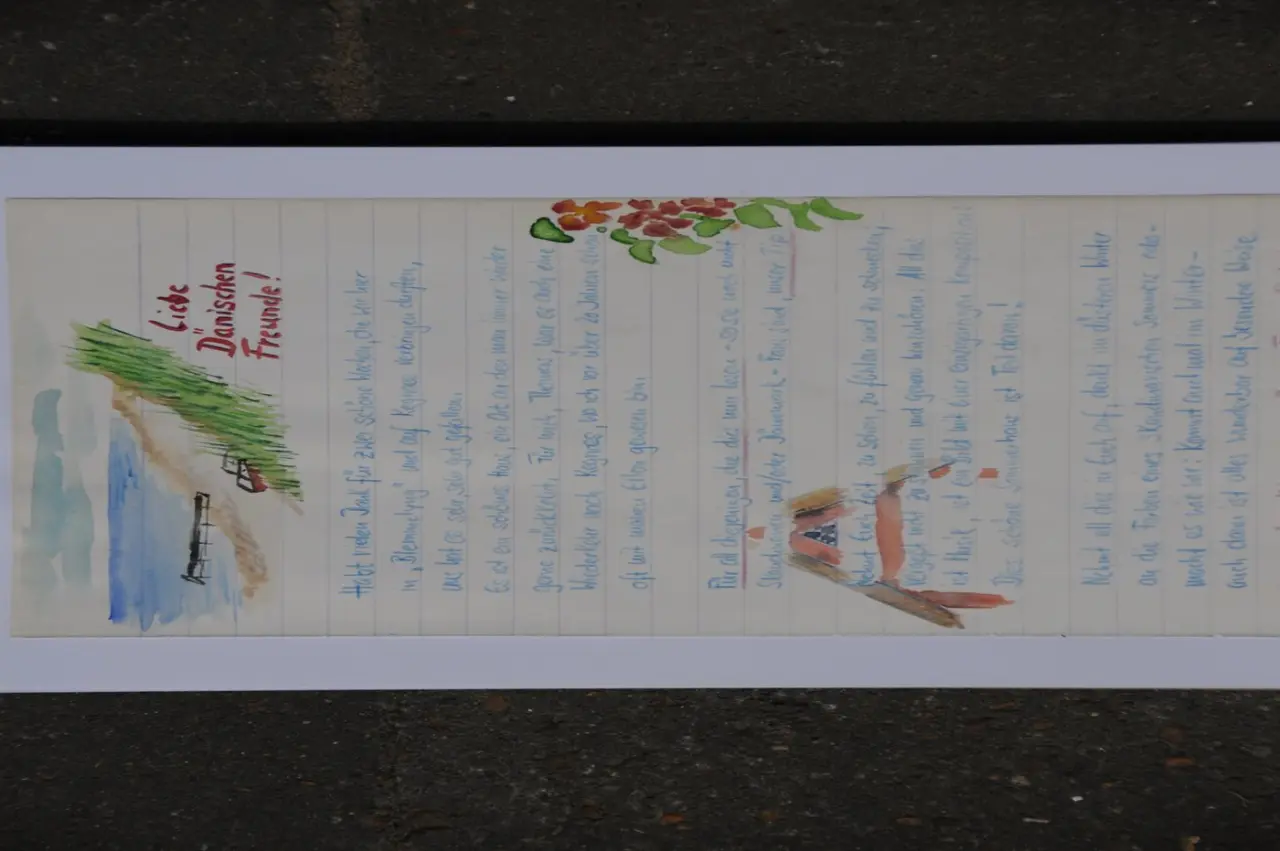 Liebe
Dänischen
Freunde!
Habt vielen Dank für zwei schöne Wochen, die wir hier
in „Blommelyng" und auf Kegnæs verbringen durften,
uns hat es sehr, sehr gut gefallen.
Es ist ein schönes Haus, ein Ort an den man immer wieder
gerne zurückkehrt. Für mich, Thomas, war es auch eine
Wiederkehr nach Kegnæs, wo ich vor über 20 Jahren schon
oft mit meinen Eltern gewesen bin.
Für all diejenigen, die dies nun lesen
und/oder Dänemark-Fans sind, unser Tip
Nehmt Euch Zeit, zu sehen, zu fühlen und zu schmecken,
vergesst nicht zu und genau hinzuhören. All das
ist Teil, ist ein Bild mit Euer
Dies schöne Sommerhaus ist Teil davon!
Nehmt all dies in Euch auf, denkt im dicksten Winter
an die Farben eines skandinavischen Sommers oder
macht es wie wir: Kommt auch mal im Winter –
auch dann ist alles wunderbar auf seine Weise